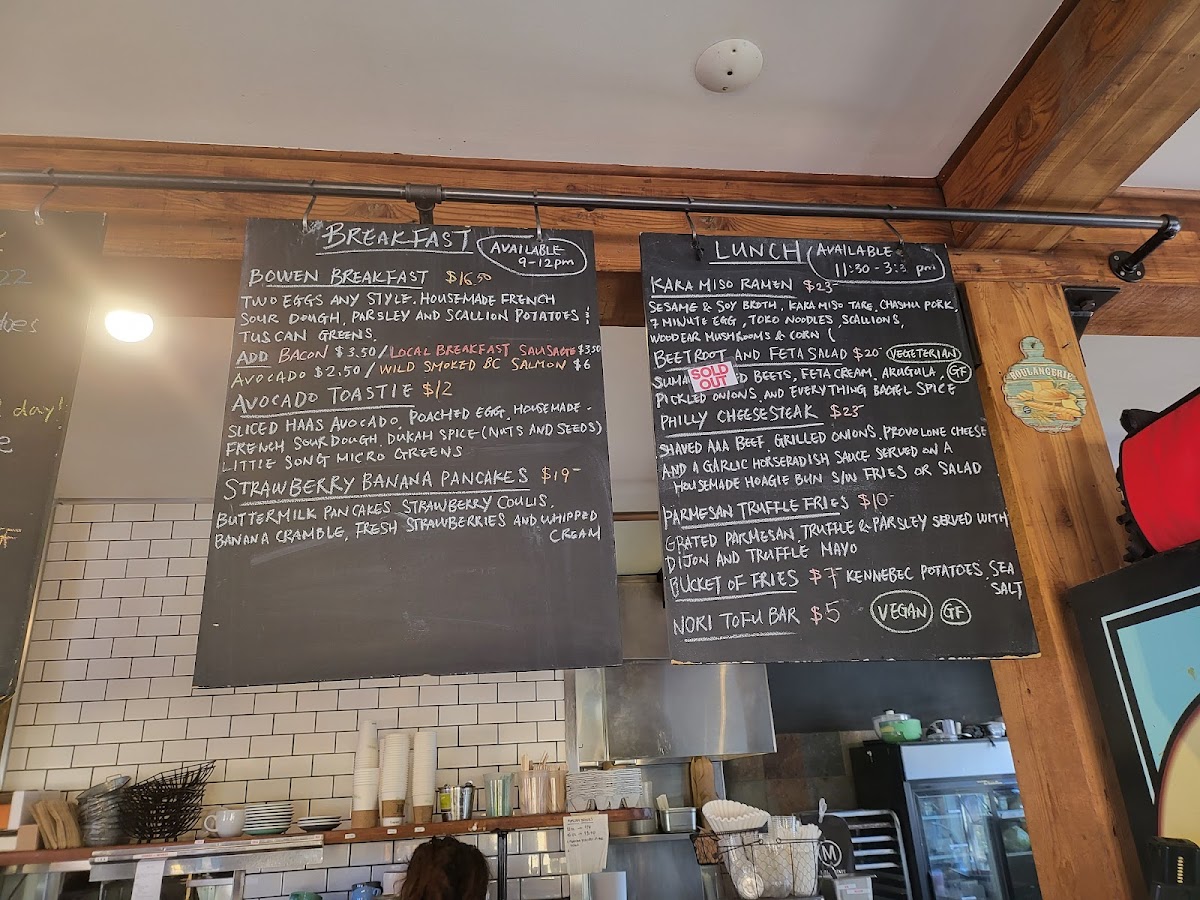 22
toes
day!
BREAKFAST
AVAILABLE
9-12pm
BOWEN BREAKFAST $16.50
TWO EGGS ANY STYLE, HOUSEMADE FRENCH
SOUR DOUGH, PARSLEY AND SCALLION POTATOES &
TUSCAN GREENS.
ADD BACON $3.50/LOCAL BREAKFAST SAUSAGE $3.50
AVOCADO $2.50/WILD SMOKED BC SALMON $6
AVOCADO TOASTIE $12
SLICED HAAS AVOCADO, POACHED EGG, HOUSEMADE
FRENCH SOURDOUGH, DUKAH SPICE (NUTS AND SEEDS)
LITTLE SONG MICRO GREENS
STRAWBERRY BANANA PANCAKES $19-
BUTTERMILK PANCAKES STRAWBERRY COULIS,
BANANA CRAMBLE, FRESH STRAWBERRIES AND WHIPPED
CREAM
LUNCH
AVAILABLE
11:30 - 3:3 pm
KARA MISO RAMEN $23-
SESAME & SOY BROTH, KARA MISO TARE, CHASHU PORK,
7 MINUTE EGG, TOKO NOODLES, SCALLIONS,
WOOD EAR MUSHROOMS & CORN (
BEETROOT AND FETA SALAD $20- VEGETERIAN
SUMA SOLD OUT ED BEETS, FETA CREAM, ARUGULA, GF
PICKLED ONIONS, AND EVERYTHING BAGEL SPICE
PHILLY CHEESESTEAK $25-
SHAVED AAA BEEF, GRILLED ONIONS, PROVOLONE CHEESE
AND A GARLIC HORSERADISH SAUCE SERVED ON A
HOUSEMADE HOAGIE BUN S/W FRIES OR SALAD
PARMESAN TRUFFLE FRIES $10-
GRATED PARMESAN, TRUFFLE & PARSLEY SERVED WITH
DIJON AND TRUFFLE MAYO
BUCKET OF FRIES $7 KENNEBEC POTATOES, SEA
SALT
NORI TOFU BAR $5 VEGAN GF
BOULANGERIE
M